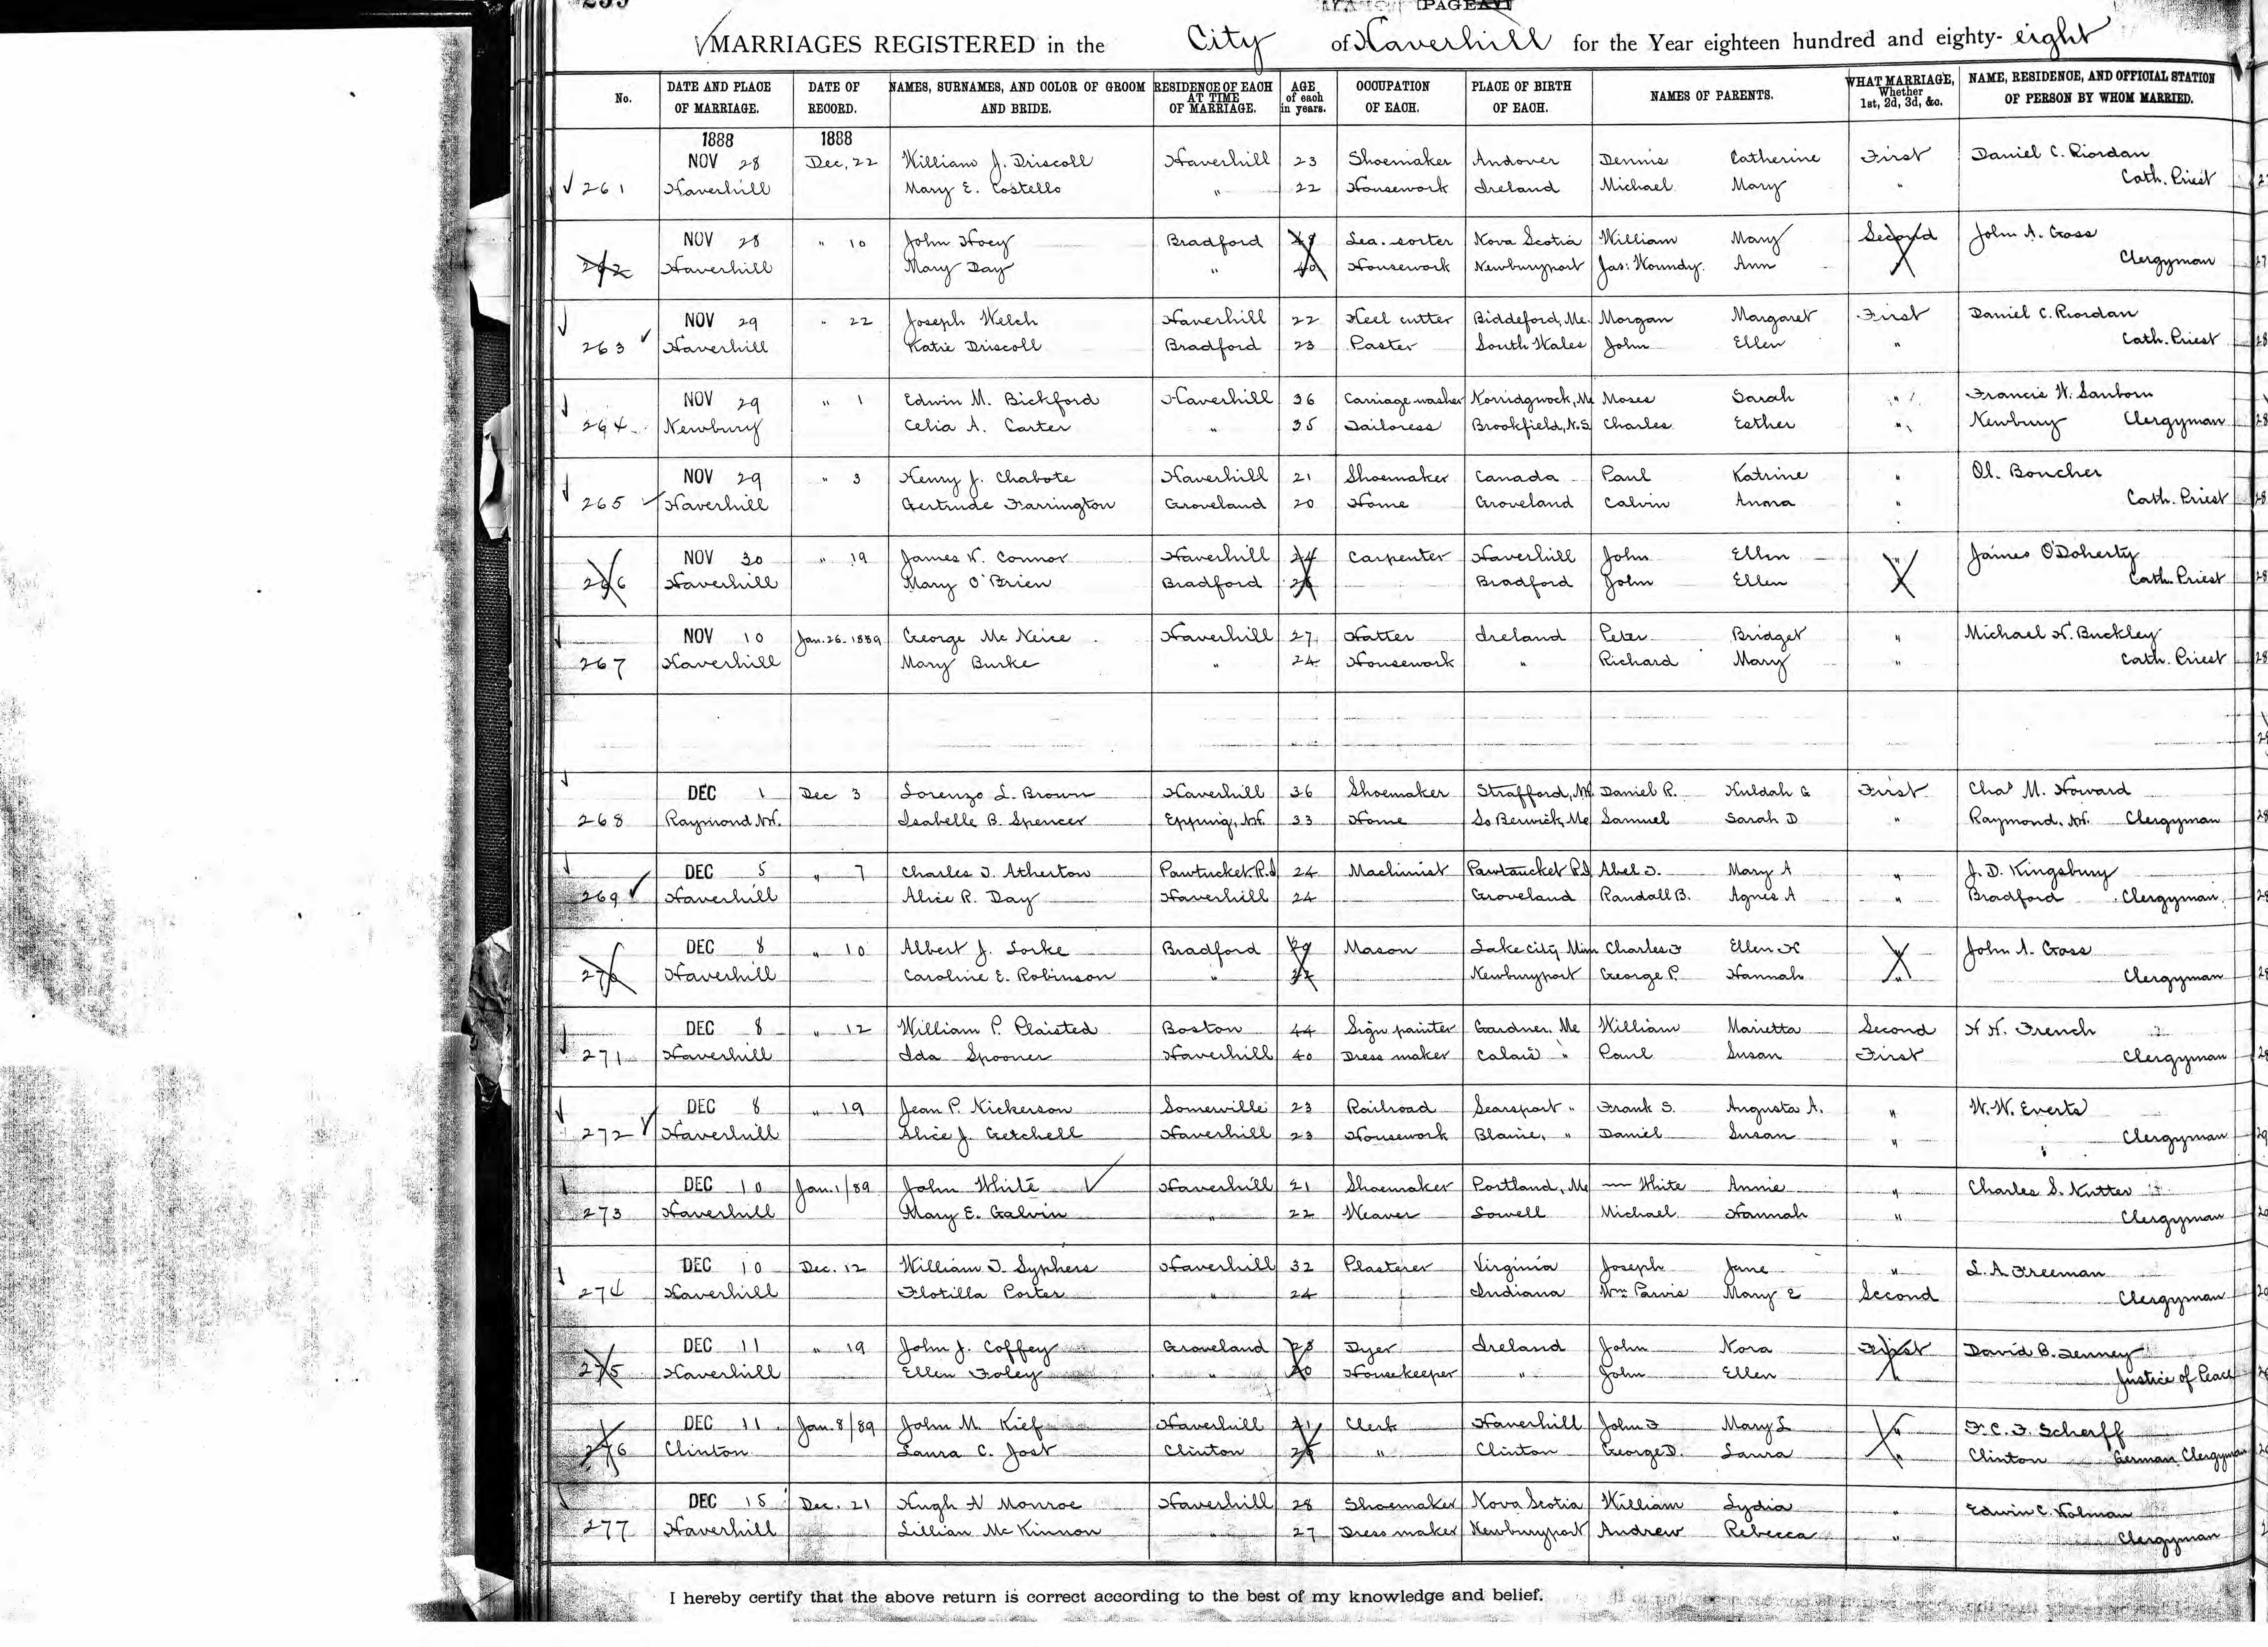 MARRIAGES REGISTERED in the City of Haverhill for the Year eighteen hundred and eighty- eight
No. DATE AND PLACE OF MARRIAGE. DATE OF RECORD. NAMES, SURNAMES, AND COLOR OF GROOM AND BRIDE. RESIDENCE OF EACH AT TIME OF MARRIAGE. AGE of each in years. OCCUPATION OF EACH. PLACE OF BIRTH OF EACH. NAMES OF PARENTS. WHAT MARRIAGE, Whether 1st, 2d, 3d, &c. NAME, RESIDENCE, AND OFFICIAL STATION OF PERSON BY WHOM MARRIED.
1888 1888
NOV 28 Dec, 22 William J. Driscoll Haverhill 23 Shoemaker Andover Dennis Catherine First Daniel C. Riordan
261 Haverhill Mary E. Costello " 22 Housework Ireland Michael Mary " Cath. Priest
NOV 28 " 10 John Hoey Bradford 49 Lea. sorter Nova Scotia William Mary Second John A. Goss
262 Haverhill Mary Day " 40 Housework Newburyport Jas: Woundy. Ann " Clergyman
NOV 29 " 22 Joseph Welch Haverhill 22 Heel cutter Biddeford, Me. Morgan Margaret First Daniel C. Riordan
263 Haverhill Katie Driscoll Bradford 23 Paster South Wales John Ellen " Cath. Priest
NOV 29 " 1 Edwin M. Bickford Haverhill 36 Carriage washer Norridgwock, Me Moses Sarah " Francis W. Sanborn
264 Newbury Celia A. Carter " 35 Tailoress Brookfield, N.S. Charles Esther " Newbury Clergyman
NOV 29 " 3 Henry J. Chabote Haverhill 21 Shoemaker Canada Paul Katrine " Ol. Boucher
265 Haverhill Gertrude Farrington Groveland 20 Home Groveland Calvin Anna " Cath. Priest
NOV 30 " 19 James H. Connor Haverhill 24 Carpenter Haverhill John Ellen " James O'Doherty
266 Haverhill Mary O'Brien Bradford 26 Bradford John Ellen " Cath. Priest
NOV 10 Jan. 26. 1889 George McNeice Haverhill 27 Hatter Ireland Peter Bridget " Michael H. Buckley
267 Haverhill Mary Burke " 24 Housework " Richard Mary " Cath. Priest
DEC 1 Dec 3 Lorenzo L. Brown Haverhill 36 Shoemaker Strafford, NH Daniel P. Huldah G First Chas M. Howard
268 Raymond N.H. Isabelle B. Spencer Epping, N.H. 33 Home So Berwick, Me Samuel Sarah D " Raymond, N.H. Clergyman
DEC 5 " 7 Charles T. Atherton Pawtucket R.I 24 Machinist Pawtaucket R.I Abel T. Mary A " J. D. Kingsbury
269 Haverhill Alice R. Day Haverhill 24 Groveland Randall B. Agnes A " Bradford Clergyman
DEC 8 " 10 Albert J. Locke Bradford 29 Mason Lake City, Minn Charles F Ellen K " John A. Goss
270 Haverhill Caroline E. Robinson " 22 Newburyport George P. Hannah " Clergyman
DEC 8 " 12 William P. Plaisted Boston 44 Sign painter Gardner, Me William Marietta Second H H. French
271 Haverhill Ida Spooner Haverhill 40 Dress maker Calais " Paul Susan First Clergyman
DEC 8 " 19 Jean P. Nickerson Somerville 23 Railroad Searsport " Frank S. Augusta A. " W. W. Everts
272 Haverhill Alice J. Getchell Haverhill 23 Housework Blaine, " Daniel Susan " Clergyman
DEC 10 Jan. 1/89 John White Haverhill 21 Shoemaker Portland, Me — White Annie " Charles S. Nutter
273 Haverhill Mary E. Galvin " 22 Weaver Lowell Michael Hannah " Clergyman
DEC 10 Dec. 12 William T. Syphers Haverhill 32 Plasterer Virginia Joseph Jane " L. A. Freeman
274 Haverhill Flotilla Porter " 24 Indiana Wm Parvis Mary E Second Clergyman
DEC 11 " 19 John J. Coffey Groveland 28 Dyer Ireland John Nora First David B. Tenney
275 Haverhill Ellen Foley " 40 Housekeeper " John Ellen " Justice of Peace
DEC 11 Jan. 8/89 John M. Kief Haverhill 21 Clerk Haverhill John F Mary L " F. C. F. Scherff
276 Clinton Laura C. Jost Clinton 26 " Clinton George D. Laura " Clinton German Clergyman
DEC 15 Dec. 21 Hugh H Monroe Haverhill 28 Shoemaker Nova Scotia William Lydia " Edwin C. Holman
277 Haverhill Lillian McKinnon " 27 Dress maker Newburyport Andrew Rebecca " Clergyman
I hereby certify that the above return is correct according to the best of my knowledge and belief.